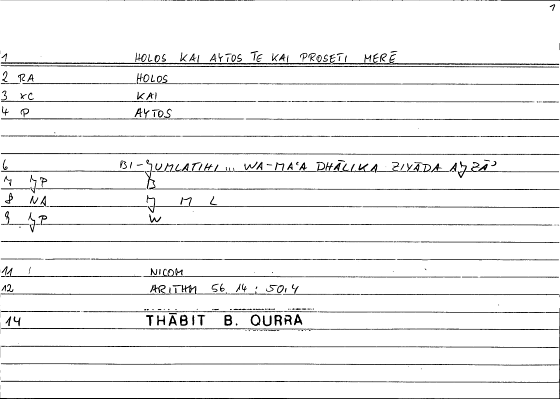 1
1 HOLOS KAI AYTOS TE KAI PROSETI MERĒ
2 RA HOLOS
3 xC KAI
4 P AYTOS
6 BI-ǦUMLATIHI ... WA-MA'A DHĀLIKA ZIYĀDA AǦZĀ'
7 ǦP B
8 NA Ǧ M L
9 ǦP W
11 1 NICOM
12 ARITHM 56, 14 : 50,4
14 THĀBIT B. QURRA